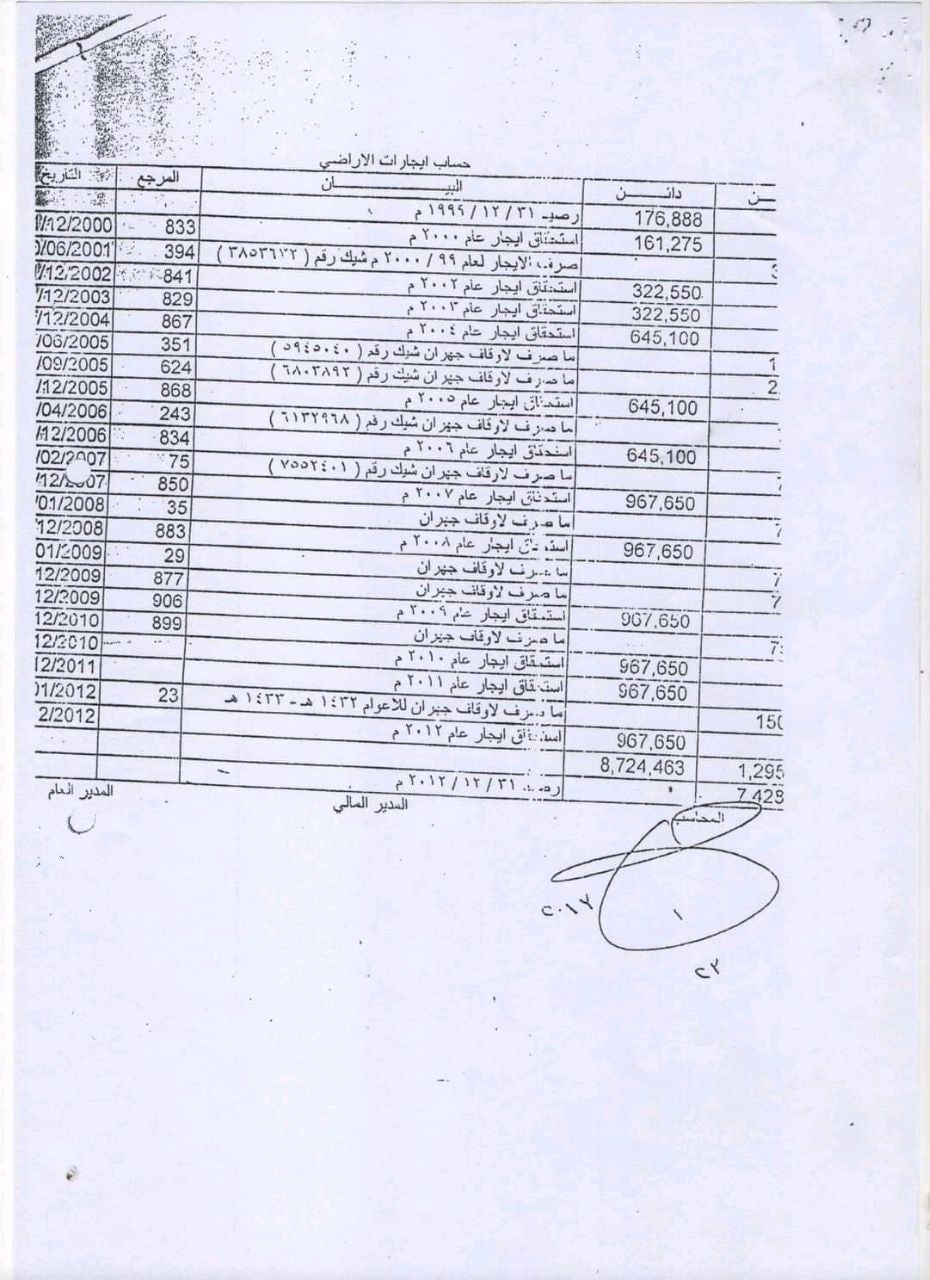 حساب ايجارات الاراضي
ـن | دائـــن | البيـــــــان | المرجع | التاريخ
176,888 | رصيد ٣١ / ١٢ / ١٩٩٩ م
161,275 | استحقاق ايجار عام ٢٠٠٠ م | 833 | /12/2000
صرف الايجار لعام ٩٩ / ٢٠٠٠ م شيك رقم ( ) | 394 | /06/2001
322,550 | استحقاق ايجار عام ٢٠٠٢ م | 841 | /12/2002
322,550 | استحقاق ايجار عام ٢٠٠٣ م | 829 | /12/2003
645,100 | استحقاق ايجار عام ٢٠٠٤ م | 867 | /12/2004
1 | ما صرف لاوقاف جهران شيك رقم ( ٥٩٤٥٠٤٠ ) | 351 | /06/2005
2 | ما صرف لاوقاف جهران شيك رقم ( ٦٨٠٣٨٩٢ ) | 624 | /09/2005
645,100 | استحقاق ايجار عام ٢٠٠٥ م | 868 | /12/2005
ما صرف لاوقاف جهران شيك رقم ( ٦١٣٢٩٦٨ ) | 243 | /04/2006
645,100 | استحقاق ايجار عام ٢٠٠٦ م | 834 | /12/2006
ما صرف لاوقاف جهران شيك رقم ( ٧٥٥٢٤٠١ ) | 75 | /02/2007
967,650 | استحقاق ايجار عام ٢٠٠٧ م | 850 | /12/2007
7 | ما صرف لاوقاف جهران | 35 | /01/2008
967,650 | استحقاق ايجار عام ٢٠٠٨ م | 883 | /12/2008
7 | ما صرف لاوقاف جهران | 29 | 01/2009
7 | ما صرف لاوقاف جهران | 877 | 12/2009
967,650 | استحقاق ايجار عام ٢٠٠٩ م | 906 | 12/2009
7 | ما صرف لاوقاف جهران | 899 | 12/2010
967,650 | استحقاق ايجار عام ٢٠١٠ م | 12/2010
967,650 | استحقاق ايجار عام ٢٠١١ م | 12/2011
150 | ما صرف لاوقاف جهران للاعوام ١٤٣٢ هـ - ١٤٣٣ هـ | 23 | 01/2012
967,650 | استحقاق ايجار عام ٢٠١٢ م | 2/2012
1,295 | 8,724,463
7,428 | رصيد ٣١ / ١٢ / ٢٠١٢ م
المحاسب | المدير المالي | المدير العام